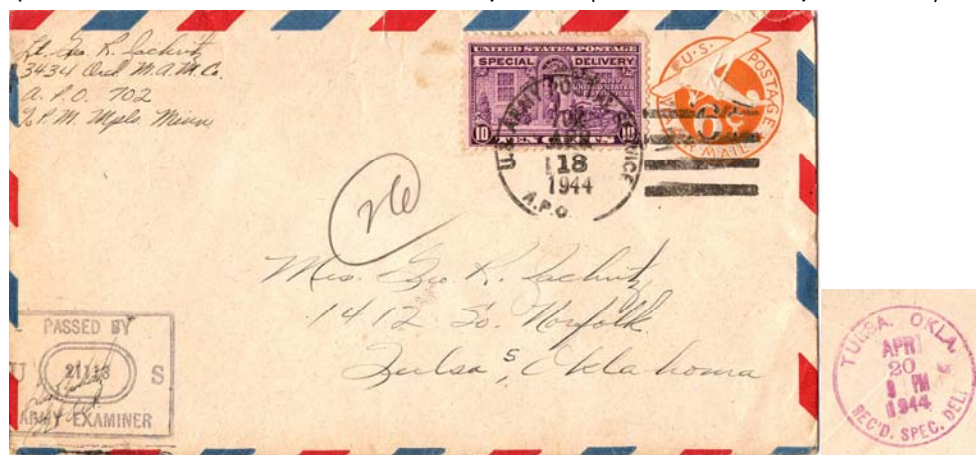 Lt. Geo R. Lachutz
3434 Ord. M.A.M. Co.
A. P. O. 702
% P. M. Mpls Minn
UNITED STATES POSTAGE
SPECIAL DELIVERY
10 TEN CENTS 10
U.S. ARMY POSTAL SERVICE
702
APR
18
1944
A.P.O.
U.S. POSTAGE
6¢
VIA AIR MAIL
26
Mrs. Geo R. Lachutz
1412 So. Norfolk
Tulsa 5, Oklahoma
PASSED BY
U 21113 S
ARMY EXAMINER
TULSA, OKLA.
APR
20
9 PM
1944
REC'D. SPEC. DEL.